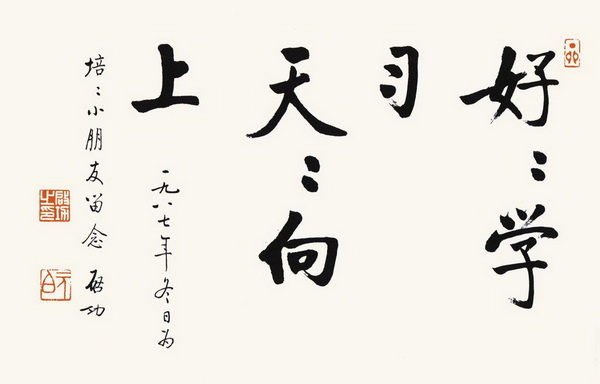 好〻学
习
天〻向
上
一九八七年冬日为
培〻小朋友留念 启功
元白